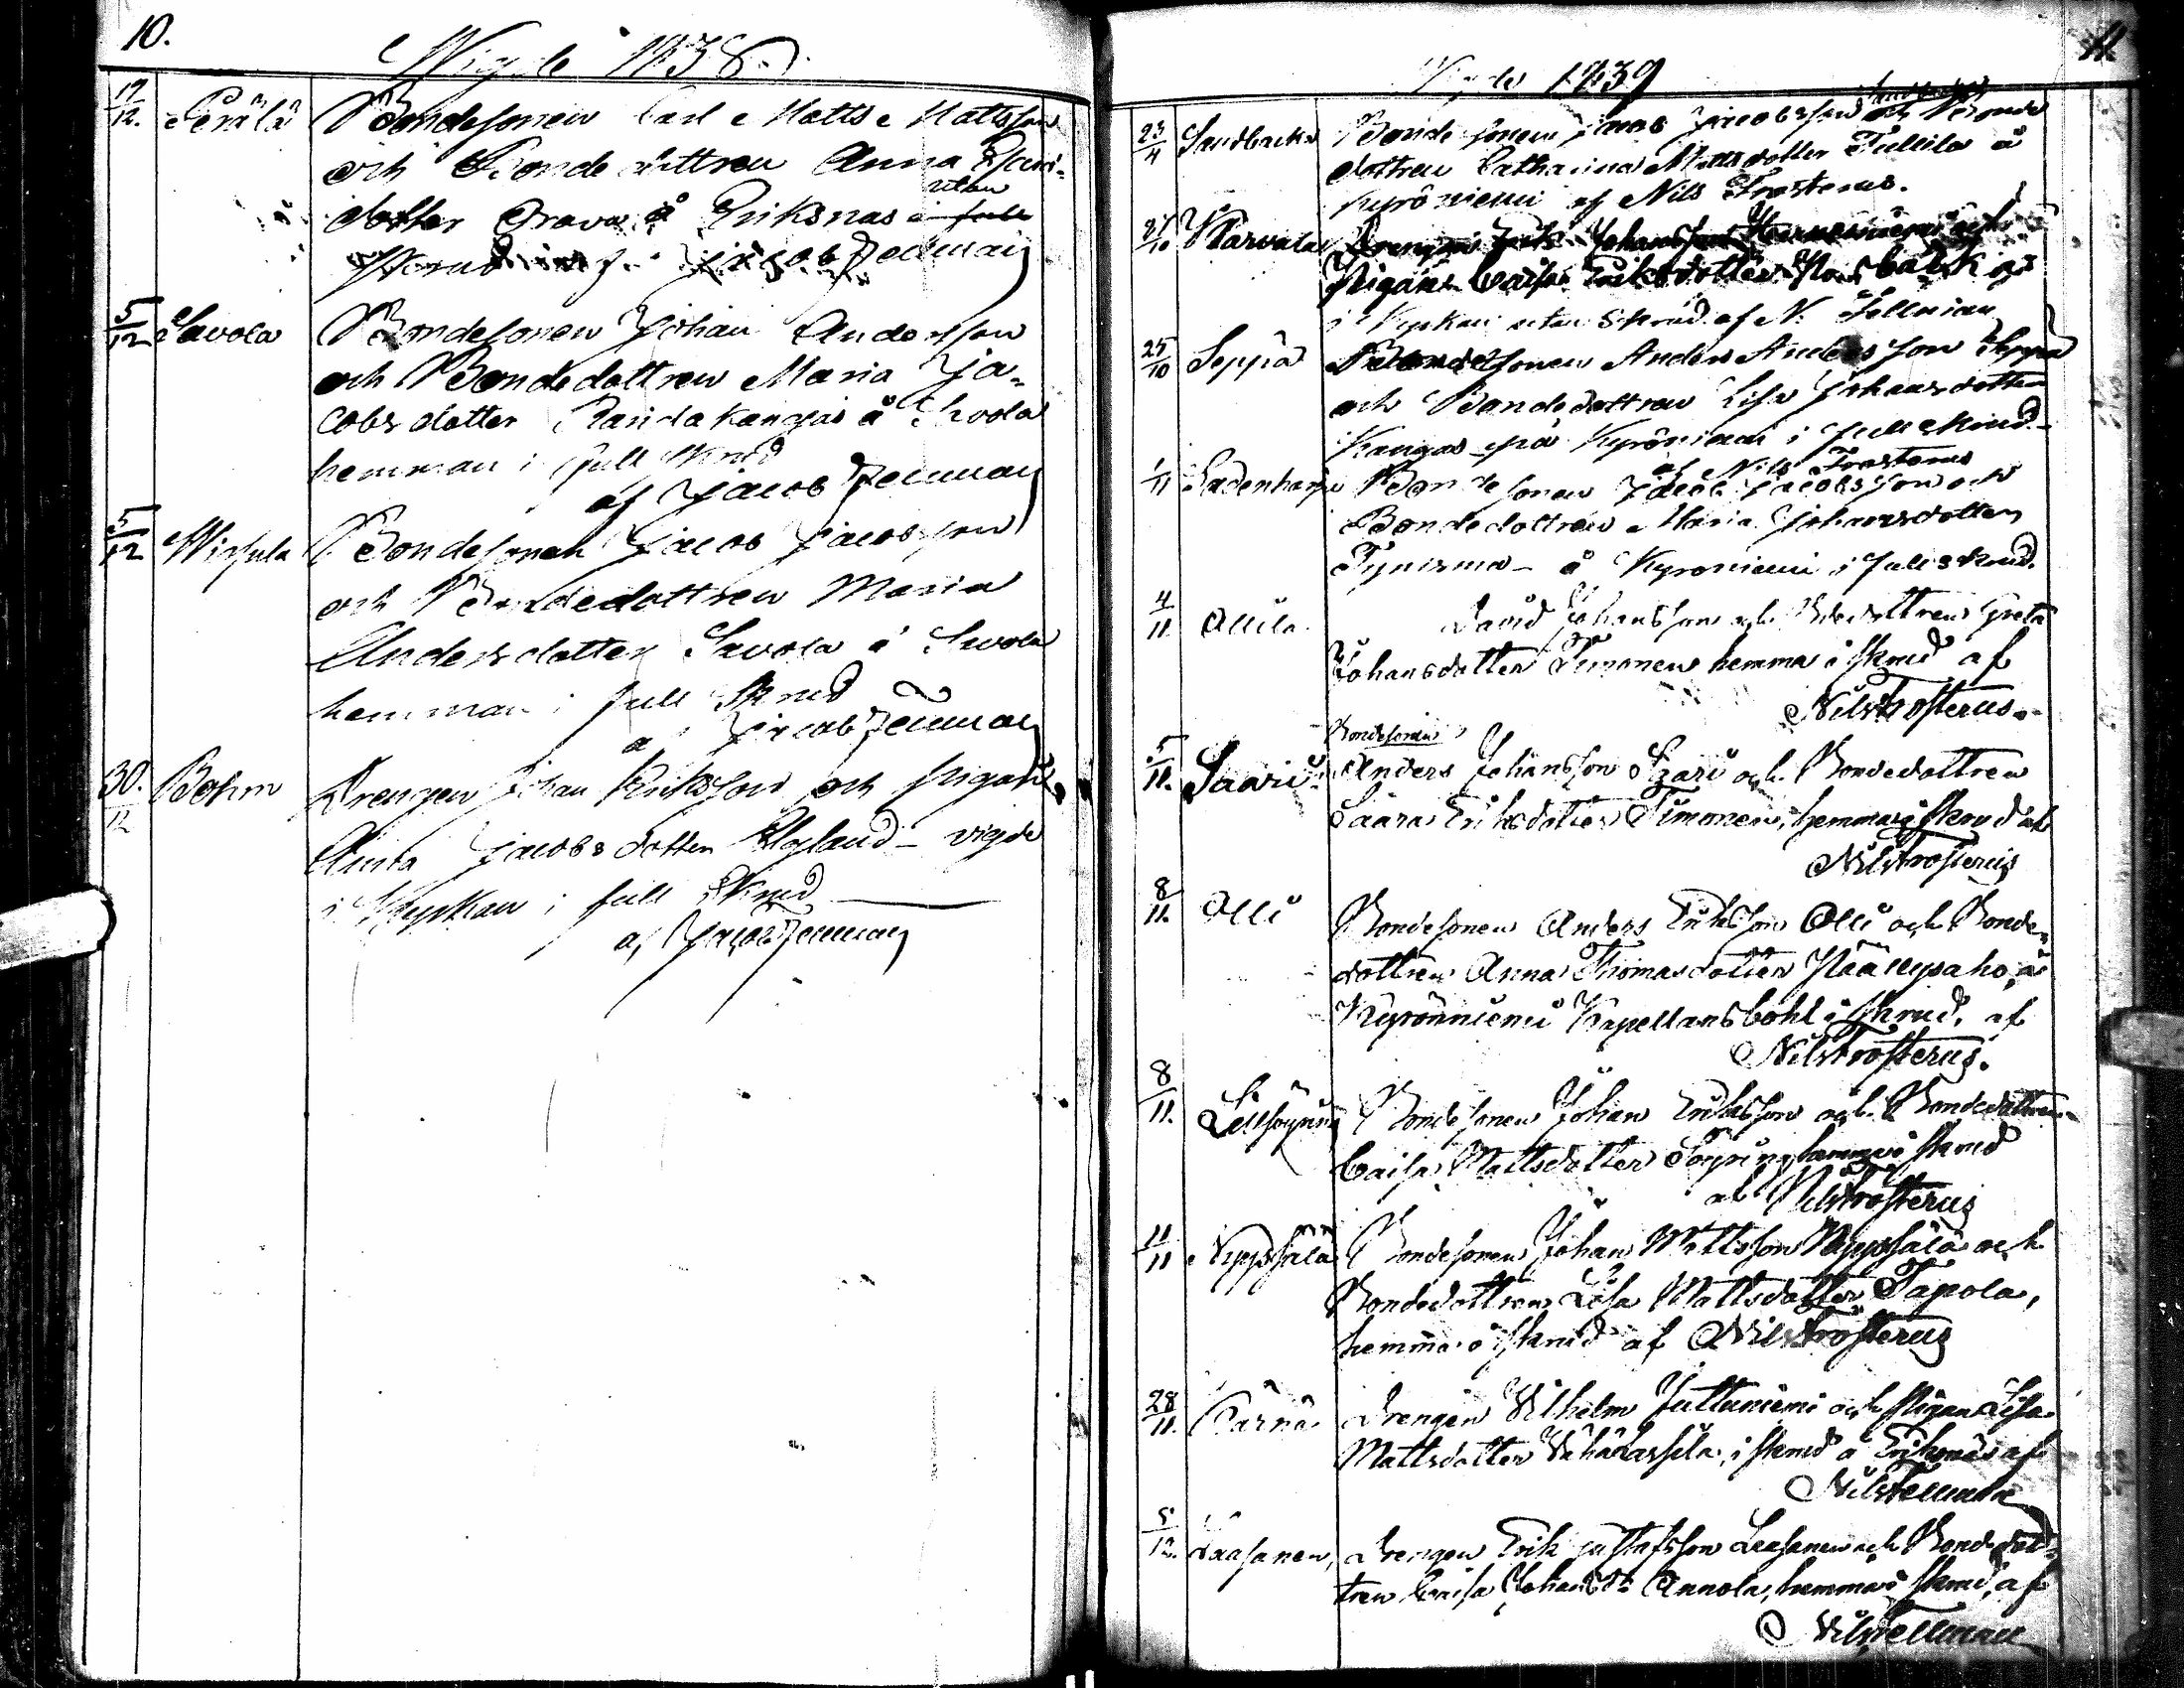 10.
Wigde 1838.
19/12. Perälä Bondesonen Carl Matts Mattsson
och Bondedottren Anna Isacs-
dotter Grava å Eriksnäs utan
skrud Jacob Fellman
5/12 Savola Bondesonen Johan Andersson
och Bondedottren Maria Ja-
cobsdotter Randakangas å Savola
hemman i full skrud
af Jacob Fellman
5/12 Wirsula Bondesonen Jacob Jacobsson
och Bondedottren Maria
Andersdotter Savola å Savola
hemman i full skrud
a Jacob Fellman
30./12 Bohm Drengen Johan Eriksson och pigan
Anna Jacobsdotter Nyland - vigde
i Kyrkan i full skrud
af Jacob Fellman
11.
Wigde 1839
23/4 Sandbacka Bondesonen Jacob Jacobsson Sandbacka och Bonde
dottren Catharina Mattsdotter Tullila å
Kyröniemi af Nils Frosterus.
27/10 Warvala Drengen Erik Johansson och
Pigan Caisa Eriksdotter
i Kyrkan utan skrud af N. Fellman
25/10 Seppä Bondesonen Anders Andersson Seppä
och Bondedottren Lisa Johansdotter
Kangas på Kyröniemi i full skrud
af Nils Frosterus
1/11 Ladenharju Bondesonen Jacob Jacobsson och
Bondedottren Maria Johansdotter
Tynismа - å Kyroniemi i full skrud.
4/11. Ollila. David Johansson och Bdedottren Greta
Johansdotter Timonen hemma i skrud af
Nils Frosterus.
Bondesonen
5/11. Saari Anders Johansson Saari och Bondedottren
Saara Eriksdotter Timonen, hemma i skrud af
Nils Frosterus
8/11. Olli Bondesonen Anders Eriksson Olli och Bonde-
dottren Anna Thomasdotter Häällysaho, å
Kyrönniemi Kapellansbohl i skrud, af
Nils Frosterus.
8/11. Lillsöyring Bondesonen Johan Eriksson och Bondedottren
Caisa Mattsdotter Söyring hemma i skrud
af Nils Frosterus
11/11 Nyppsälä Bondesonen Johan Mattsson Nyppsälä och
Bondedottren Lisa Mattsdotter Tapola,
hemma i skrud af Nils Frosterus
28/11. Kärnä Drengen Wilhelm Juttuniemi och Pigan Lisa
Mattsdotter Vähälassila, i skrud å Eriksnäs af
Nils Fellman
5/12. Laasanen, Drengen Erik Gustafsson Laasanen och Bondedot-
tren Caisa Johansdr Annola, hemma i skrud, af
Nils Fellman